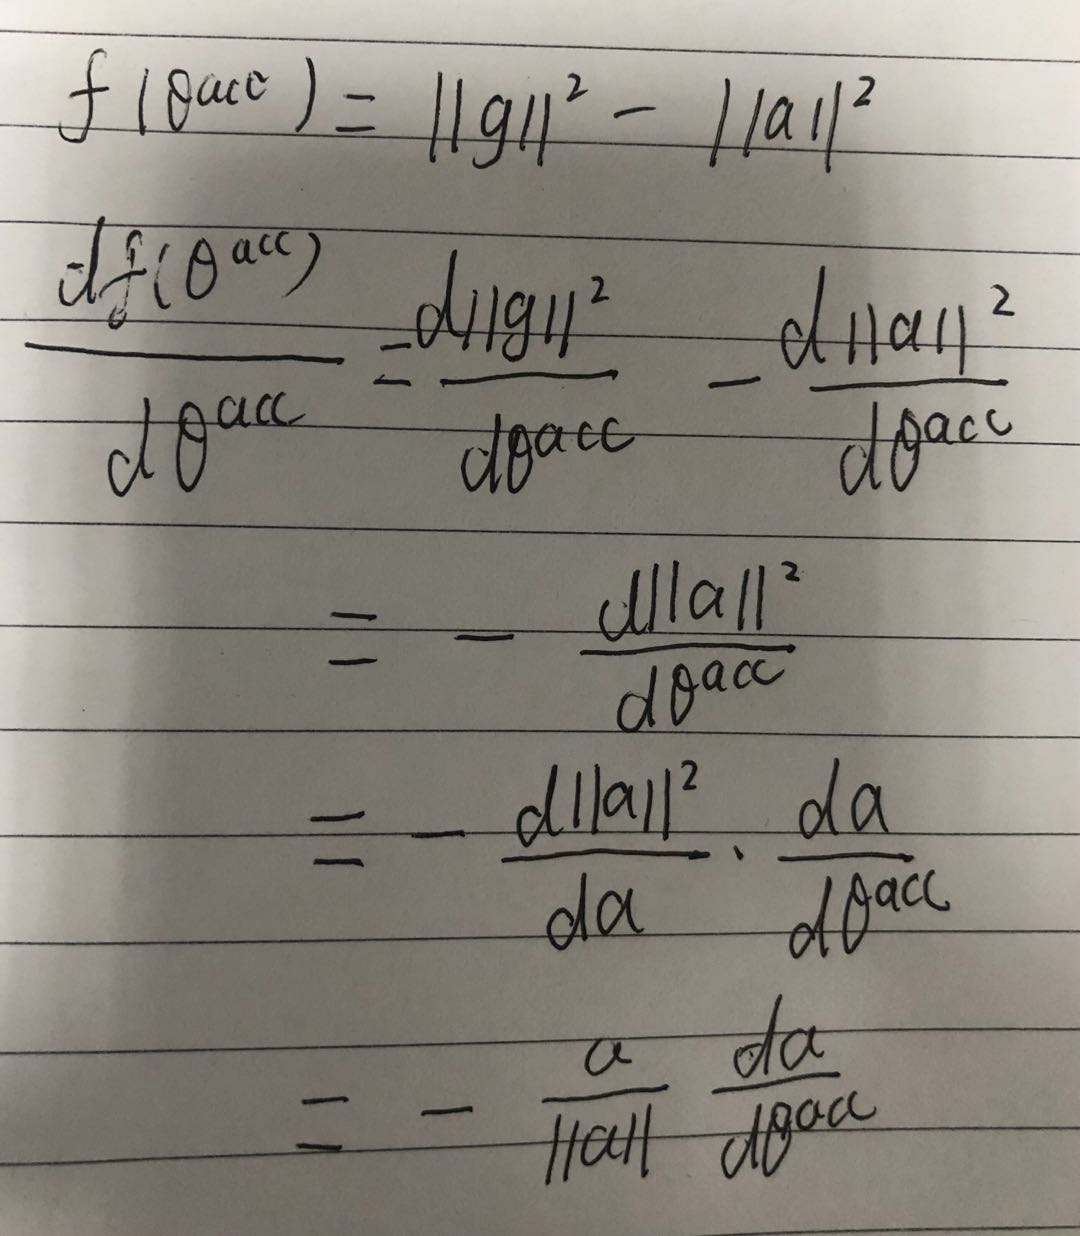 f(θ^acc) = ||g||² - ||a||²
df(θ^acc)/dθ^acc = d||g||²/dθ^acc - d||a||²/dθ^acc
= - d||a||²/dθ^acc
= - d||a||²/da · da/dθ^acc
= - a/||a|| da/dθ^acc